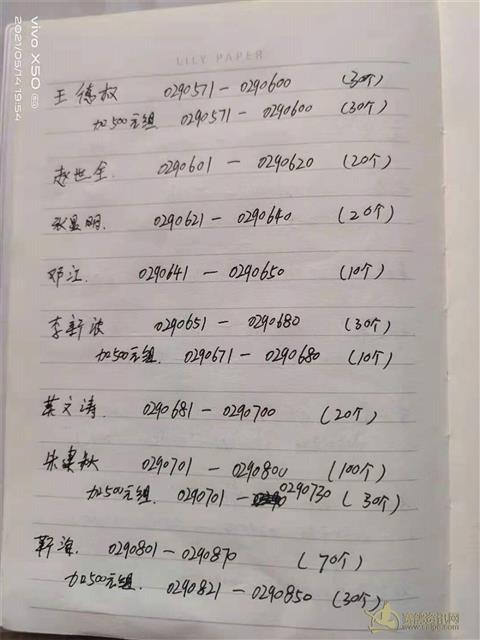 LILY PAPER
vivo X50
2021/05/14 19:54
王德权 0290571－0290600 (30个)
加500元组 0290571－0290600 (30个)
赵世全. 0290601－0290620 (20个)
张显明. 0290621－0290640 (20个)
邓江. 0290641－0290650 (10个)
李新波 0290651－0290680 (30个)
加500元组. 0290671－0290680 (10个)
文涛 0290681－0290700 (20个)
朱建秋 0290701－0290800 (100个)
加500元组. 0290701－0290730 (30个)
靳源. 0290801－0290870 (70个)
加500元组. 0290821－0290850 (30个)